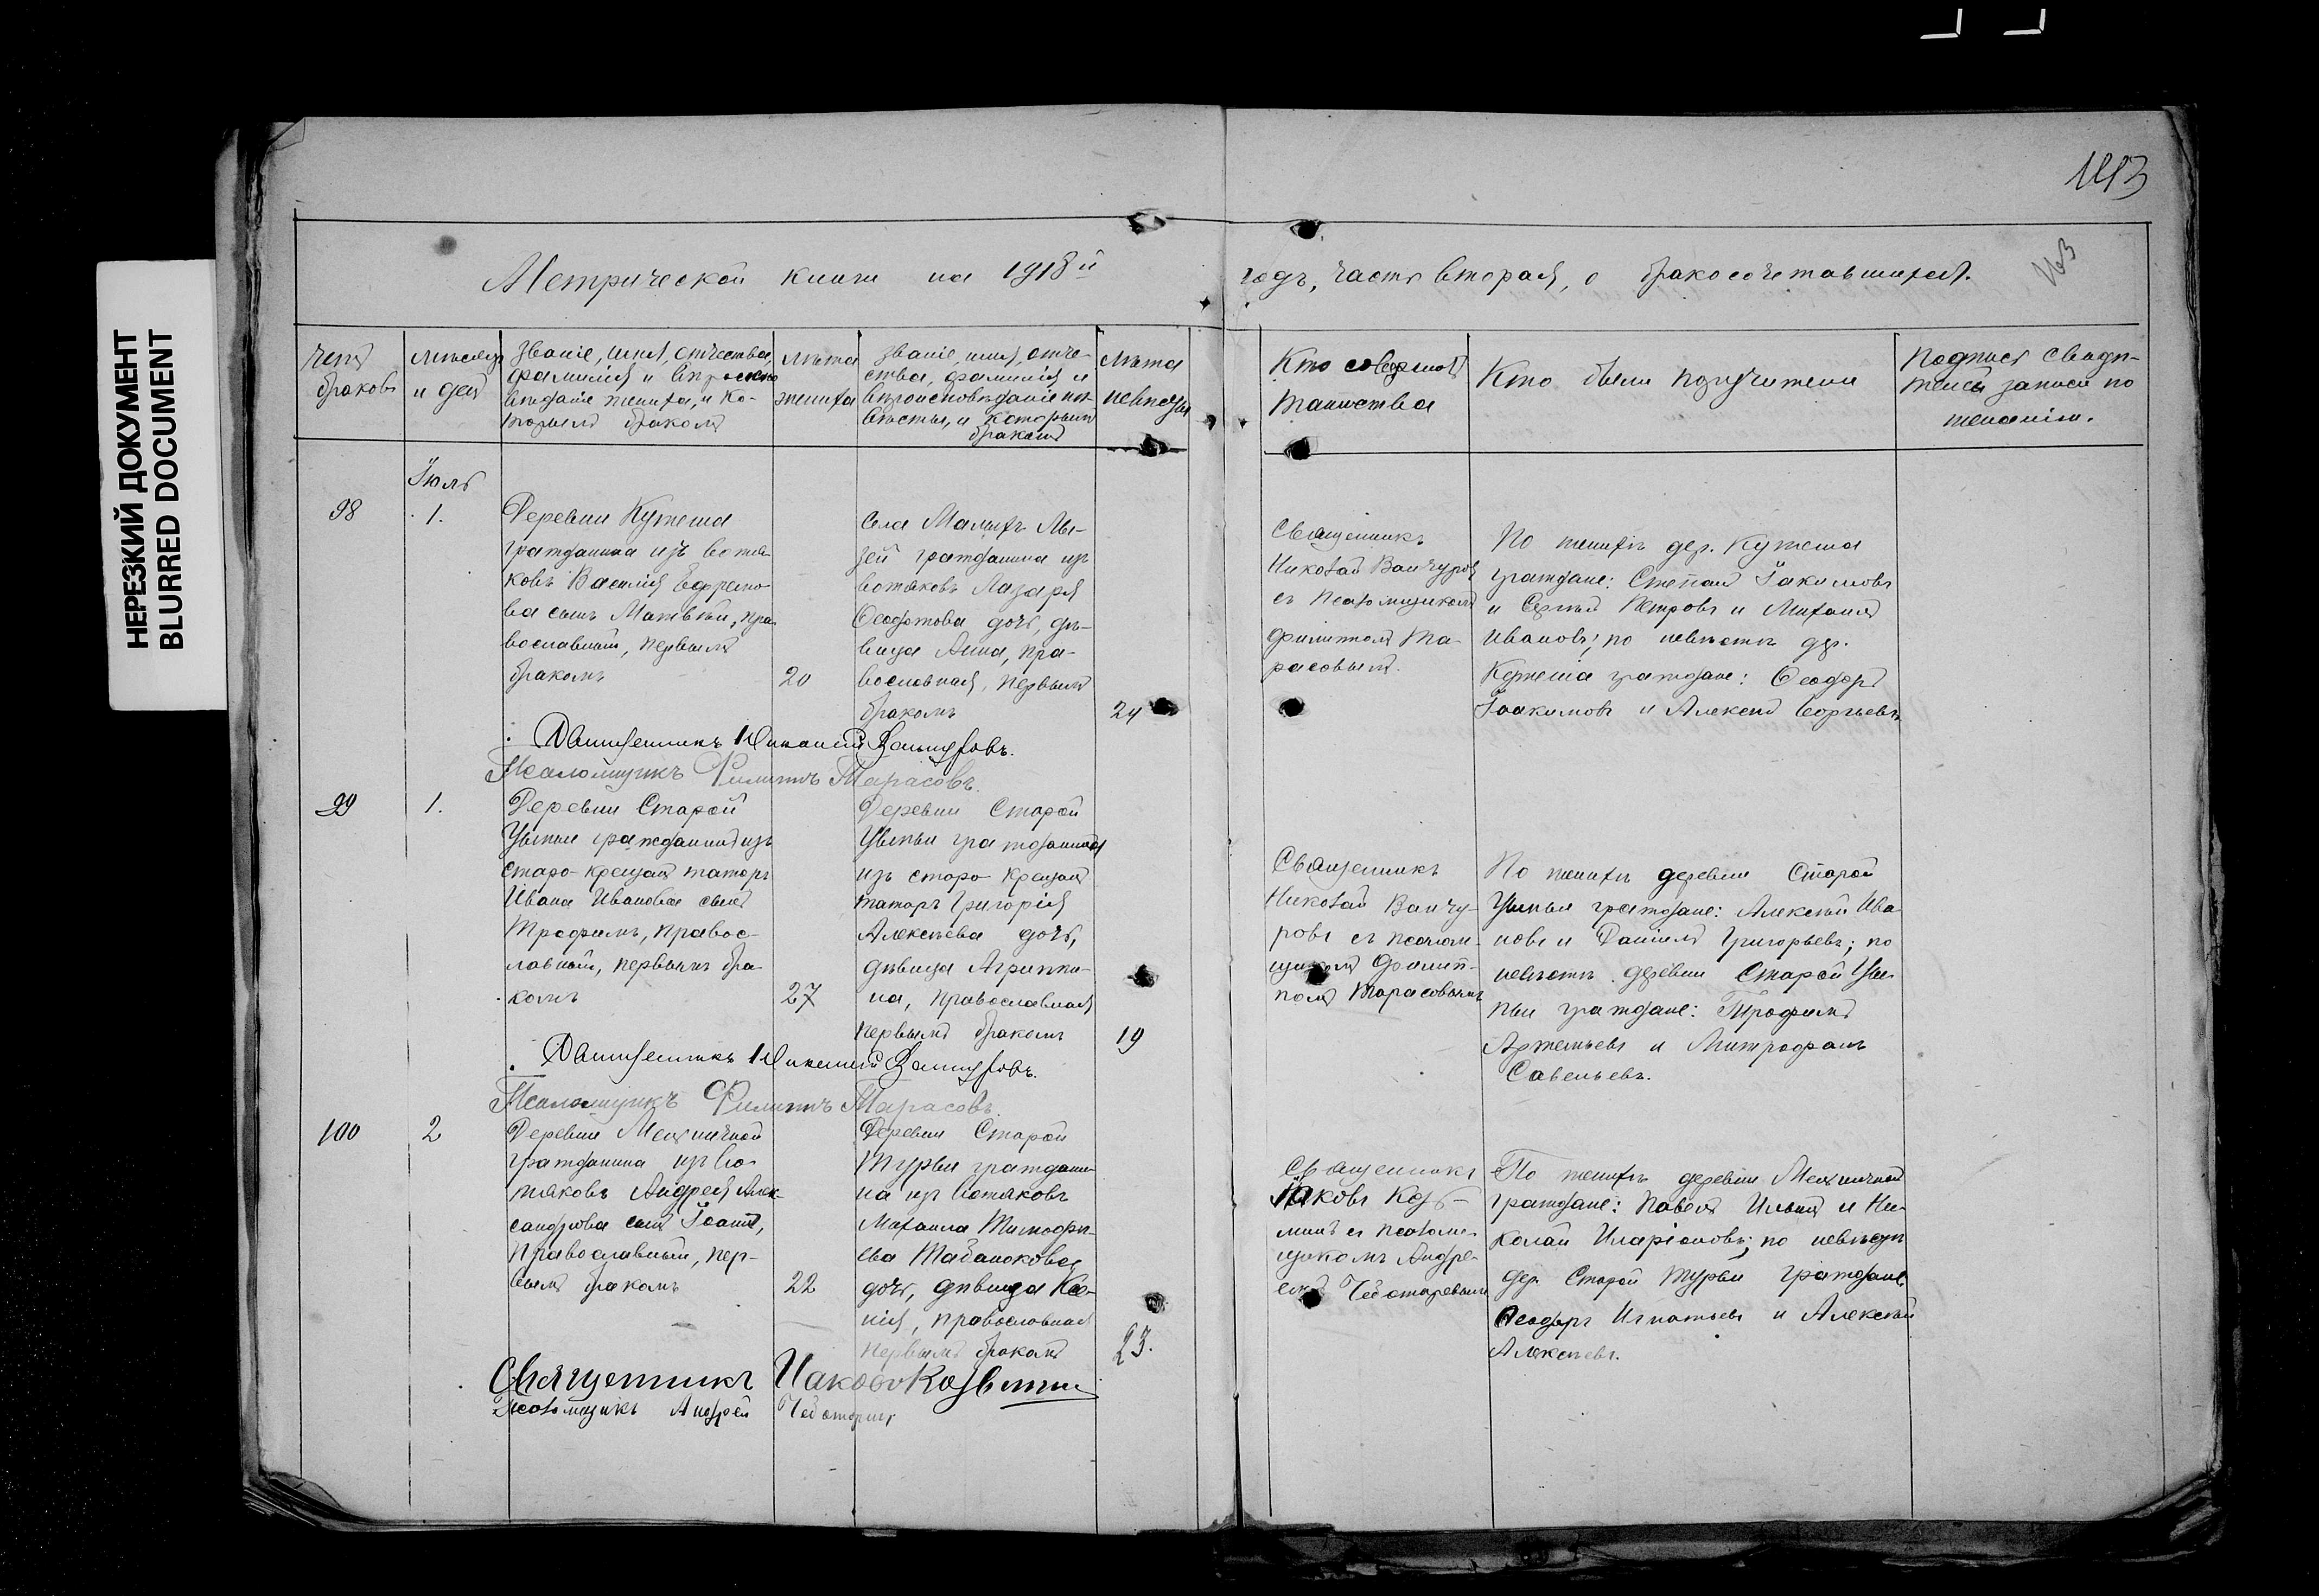 НЕРЕЗКИЙ ДОКУМЕНТ
BLURRED DOCUMENT
Метрической книги на 1918й
годъ, часть вторая, о бракосочетавшихся.
браковъ
Мѣсяцъ
и день
Званіе, имя, отчество,
фамилія и
жениха, и ко-
торымъ бракомъ
Лѣта
жениха
Званіе, имя, отче-
ство, фамилія и
вѣроисповѣданіе не-
вѣсты, и которымъ
бракомъ
Лѣта
невѣсты
Кто совершалъ
таинства
Кто были поручители
Подпись свидѣ-
телей записи по
желанію.
Іюль
98
1.
Деревни Кужеша
гражданина изъ вотя-
ковъ Василія Ефремо-
ва сынъ Матвѣй, пра-
вославный, первымъ
бракомъ
20
Села Малыхъ Лы-
зей гражданина изъ
вотяковъ Лазаря
Ѳеодотова дочь, дѣ-
вица Анна, пра-
вославная, первымъ
бракомъ
24
Священникъ
Николай Ванчуровъ
съ псаломщикомъ
Филиппомъ Та-
расовымъ.
По женихѣ дер. Кужеша
граждане: Степанъ Іакимовъ
и Сергѣй Петровъ и Михаилъ
Ивановъ; по невѣстѣ дер.
Кужеша граждане: Ѳеодоръ
Іоакимовъ и Алексѣй Георгіевъ
Священникъ Николай Ванчуровъ.
Псаломщикъ Филиппъ Тарасовъ.
99
1.
Деревни Старой
гражданина изъ
старо-крещен татаръ
Ивана Иванова сынъ
Трофимъ, правос-
лавный, первымъ бра-
комъ
27
Деревни Старой
гражданина
изъ старо-крещен
татаръ Григорія
Алексѣева дочь,
дѣвица Агриппи-
на, православная
первымъ бракомъ
19
Священникъ
Николай Ванчу-
ровъ съ псалом-
щикомъ Филип-
помъ Тарасовымъ
По женихѣ деревни Старой
граждане: Алексѣй Ива-
новъ и Даніилъ Григорьевъ; по
невѣстѣ деревни Старой
граждане: Трофимъ
Артемьевъ и Митрофанъ
Савельевъ.
Священникъ Николай Ванчуровъ.
Псаломщикъ Филиппъ Тарасовъ.
100
2
Деревни Мельничной
гражданина изъ во-
тяковъ Андрея Алек-
сандрова сынъ Іоаннъ,
православный, пер-
вымъ бракомъ
22
Деревни Старой
Турьи граждани-
на изъ вотяковъ
Михаила Тимофѣ-
ева Табанокова
дочь, дѣвица Ксе-
нія, православная
первымъ бракомъ
23.
Священникъ
Іаковъ Козь-
минъ съ псалом-
щикомъ Андре-
емъ Чеботаревымъ
По женихѣ деревни Мельничной
граждане: Павелъ Ильинъ и Ни-
колай Иларіоновъ; по невѣстѣ
дер. Старой Турьи граждане
Ѳеодоръ Игнатьевъ и Алексѣй
Алексѣевъ.
Священникъ Іаковъ Козьминъ
Псаломщикъ Андрей Чеботаревъ